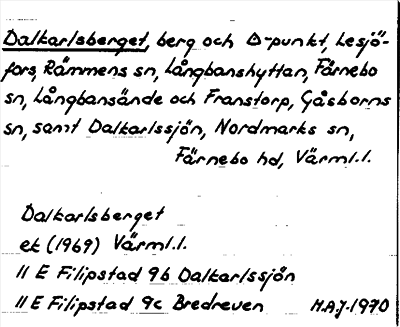 Dalkarlsberget, berg och △-punkt, Lesjö-
fors, Rämmens sn, Långbanshyttan, Färnebo
sn, Långbansände och Franstorp, Gåsborns
sn, samt Dalkarlssjön, Nordmarks sn,
Färnebo hd, Värml.l.
Dalkarlsberget
ek (1969) Värml.l.
11 E Filipstad 9b Dalkarlssjön
11 E Filipstad 9c Bredreven M.A.J. 1970